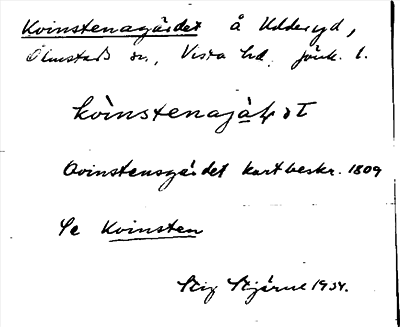 Kvinstenagärdet å Udderyd,
Ölmstads sn., Vista hd. jönk. l.
kvinstenajä
Qvinstensgärdet kartbeskr. 1809
Se Kvinsten
Stig Stjärne 1934.